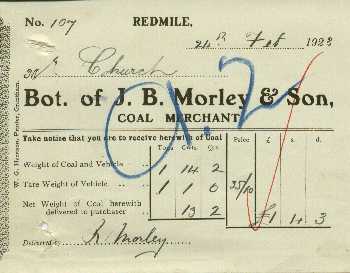 No. 107 REDMILE,
24th Feb 1922
M Church
Bot. of J. B. Morley & Son,
COAL MERCHANT
9.2
Take notice that you are to receive herewith of Coal
Tons. Cwts. Qrs. Price £ s. d.
Weight of Coal and Vehicle 1 14 2
Tare Weight of Vehicle 1 1 0 25/10
Net Weight of Coal herewith
delivered to purchaser 13 2 £1 4 3
Delivered by R. Morley